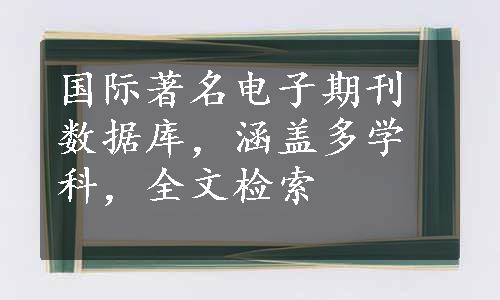 国际著名电子期刊
数据库，涵盖多学
科，全文检索